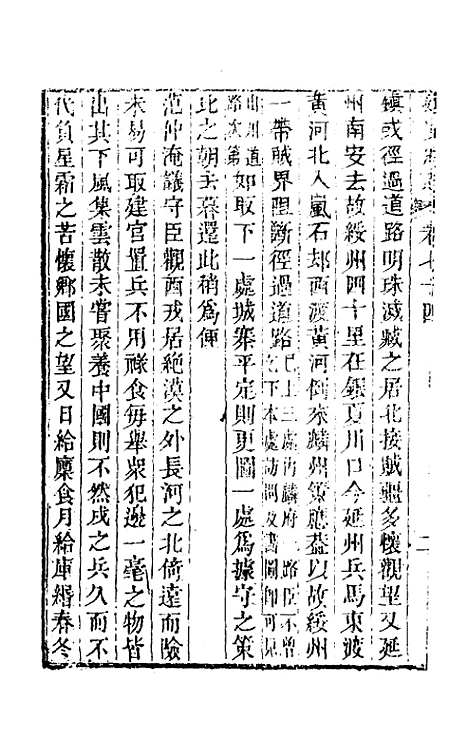 卷七十四
鎮或徑過道路明珠滅藏之居北接賊疆多懷觀望又延
州南安去故綏州四十里在銀夏川口今延州兵馬東渡
黃河北入嵐石却西渡黃河倒來麟州策應蓋以故綏州
一帶賊界阻斷徑過道路已上三處內麟府一路臣不曾
到乞下本處勘問及畫圖即可見
山川道
路次第如取下一處城寨平定則更圖一處為據守之策
比之朝去暮還此稍為便
范仲淹議守臣觀西戎居絕漠之外長河之北倚遠而險
未易可取建官置兵不用祿食每舉眾犯邊一毫之物皆
出其下風集雲散未嘗聚養中國則不然戍之兵久而不
代負星霜之苦懷鄉國之望又日給廩食月給庫緡春冬